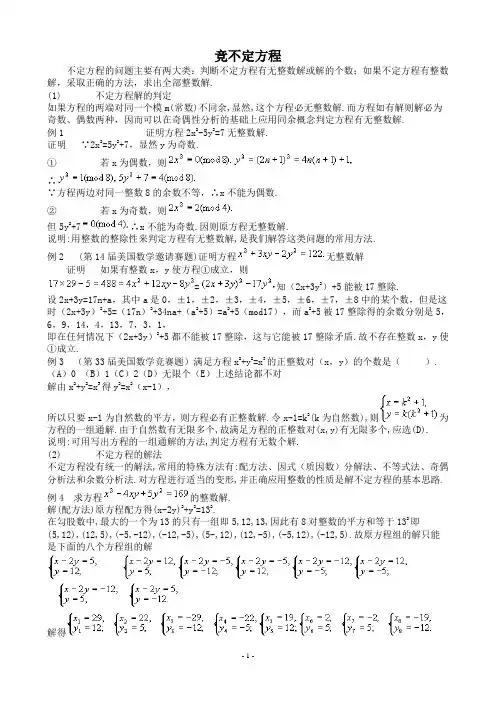 竞不定方程
不定方程的问题主要有两大类:判断不定方程有无整数解或解的个数;如果不定方程有整数
解,采取正确的方法,求出全部整数解.
(1) 不定方程解的判定
如果方程的两端对同一个模m(常数)不同余,显然,这个方程必无整数解.而方程如有解则解必为
奇数、偶数两种,因而可以在奇偶性分析的基础上应用同余概念判定方程有无整数解.
例1 证明方程2x²-5y²=7无整数解.
证明 ∵2x²=5y²+7,显然y为奇数.
① 若x为偶数,则2x³=0(mod8). y³=(2n+1)³=4n(n+1)+1,
∴y³=1(mod8),5y³+7=4(mod8).
∵方程两边对同一整数8的余数不等,∴x不能为偶数.
② 若x为奇数,则2x³=2(mod4).
但5y²+7=0(mod4).∴x不能为奇数.因则原方程无整数解.
说明:用整数的整除性来判定方程有无整数解,是我们解答这类问题的常用方法.
例2 (第14届美国数学邀请赛题)证明方程x³+3xy-2y³=122.无整数解
证明 如果有整数x,y使方程①成立,则
17×29-5=488=4x³+12xy-8y³=(2x+3y)³-17y³,知(2x+3y²)+5能被17整除.
设2x+3y=17n+a,其中a是0,±1,±2,±3,±4,±5,±6,±7,±8中的某个数,但是这
时(2x+3y)²+5=(17n)²+34na+(a²+5)=a²+5(mod17),而a²+5被17整除得的余数分别是5,
6,9,14,4,13,7,3,1,
即在任何情况下(2x+3y)²+5都不能被17整除,这与它能被17整除矛盾.故不存在整数x,y使
①成立.
例3 (第33届美国数学竞赛题)满足方程x²+y²=x³的正整数对(x,y)的个数是( ).
(A)0 (B)1(C)2(D)无限个(E)上述结论都不对
解由x²+y²=x³得y²=x²(x-1),
所以只要x-1为自然数的平方,则方程必有正整数解.令x-1=k²(k为自然数),则{x=k²+1, y=k(k²+1)为
方程的一组通解.由于自然数有无限多个,故满足方程的正整数对(x,y)有无限多个,应选(D).
说明:可用写出方程的一组通解的方法,判定方程有无数个解.
(2) 不定方程的解法
不定方程没有统一的解法,常用的特殊方法有:配方法、因式(质因数)分解法、不等式法、奇偶
分析法和余数分析法.对方程进行适当的变形,并正确应用整数的性质是解不定方程的基本思路.
例4 求方程x³-4xy+5y³=169的整数解.
解(配方法)原方程配方得(x-2y)²+y²=13².
在勾股数中,最大的一个为13的只有一组即5,12,13,因此有8对整数的平方和等于13²即
(5,12),(12,5),(-5,-12),(-12,-5),(5-,12),(12,-5),(-5,12),(-12,5).故原方程组的解只能
是下面的八个方程组的解
{x-2y=5, y=12, {x-2y=12, y=5; {x-2y=-5, y=-12; {x-2y=-5, y=12; {x-2y=-12, y=-5; {x-2y=12, y=-5;
{x-2y=-12, y=5, {x-2y=5, y=-12.
解得{x₁=29, y₁=12; {x₂=22, y₂=5, {x₃=-29, y₃=-12; {x₄=-22, y₄=-5; {x₅=19, y₅=12; {x₆=2, y₆=5; {x₇=-2, y₇=-5; {x₈=-19, y₈=-12.
- 1 -